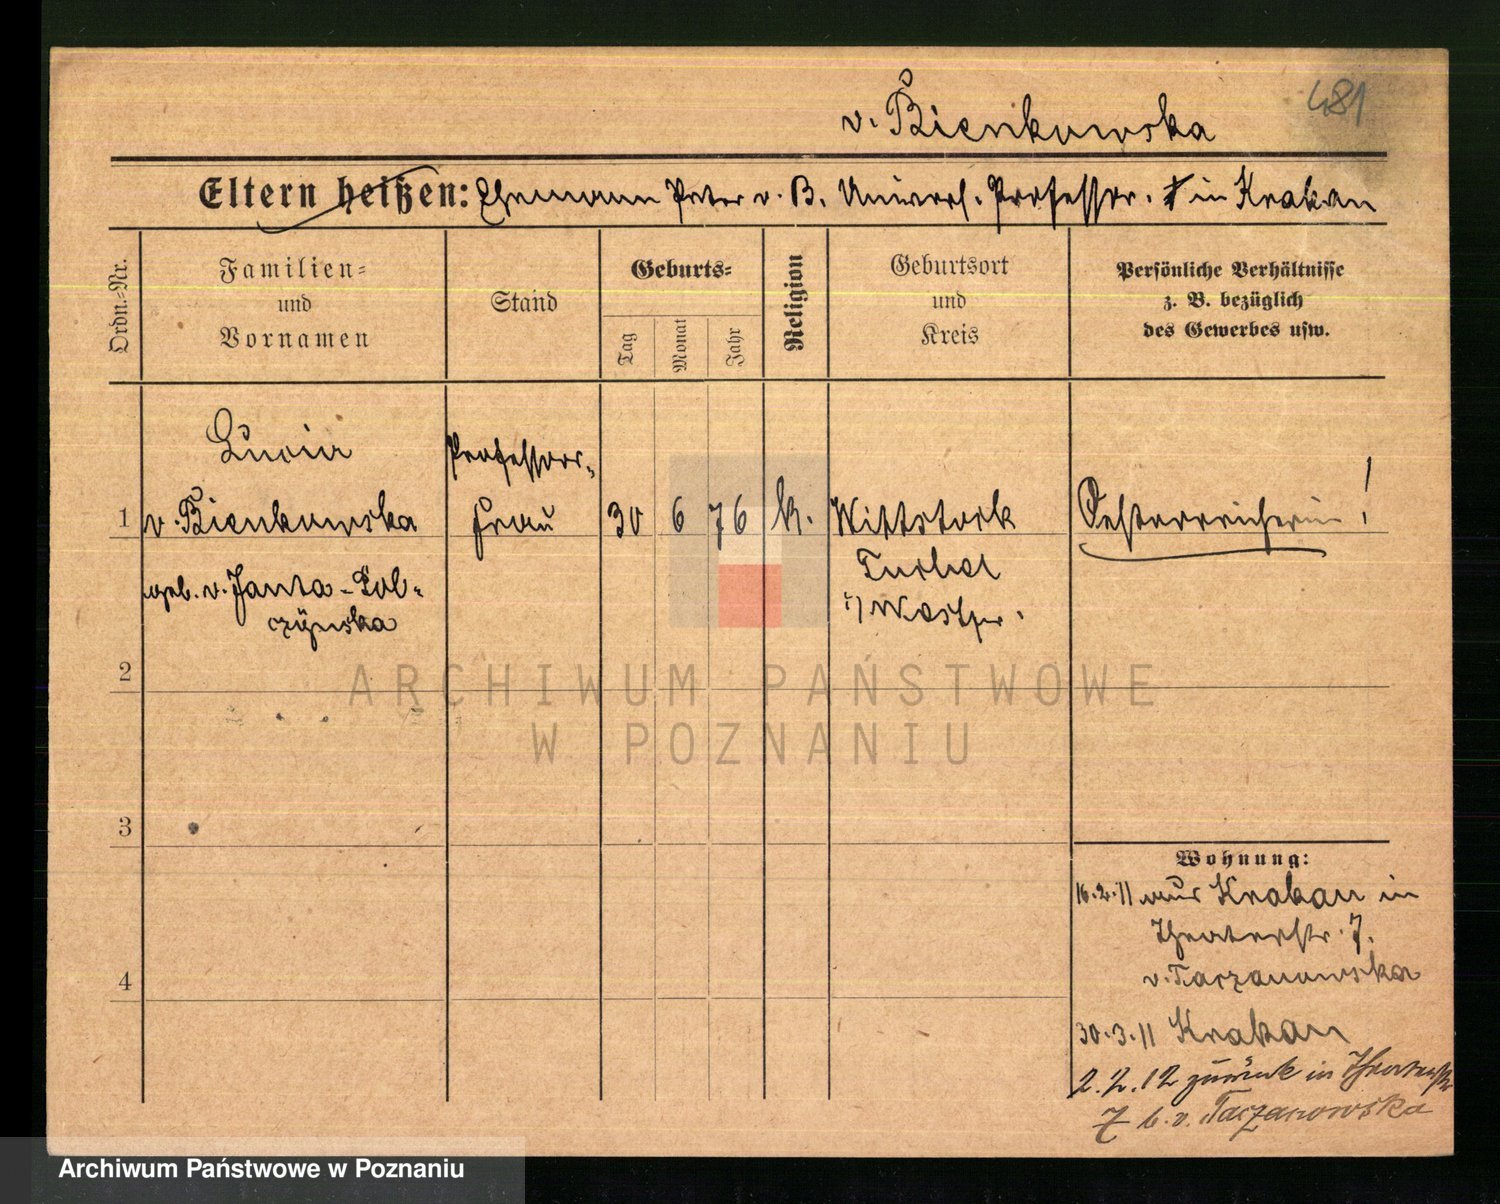 481
v. Bienkowska
Eltern heißen: Ehemann Peter v. B. Univers. Professor. in Krakau
Ordn.-Nr.
Familien-
und
Vornamen
Stand
Geburts-
Tag
Monat
Jahr
Religion
Geburtsort
und
Kreis
Persönliche Verhältnisse
z. B. bezüglich
des Gewerbes usw.
1
Lucie
v. Bienkowska
geb. v. Janta-Pol-
czynska
Professor-
frau
30 6 76 k.
Wittstock
Tuchel
i/ Westpr.
Oesterreicherin!
2
3
4
Wohnung:
16.2.11 aus Krakau in
Theaterstr. 7.
v. Taczanowska
30.3.11 Krakau
2.2.12 zurück in Theaterstr
7 b. v. Taczanowska
ARCHIWUM PAŃSTWOWE
W POZNANIU
Archiwum Państwowe w Poznaniu